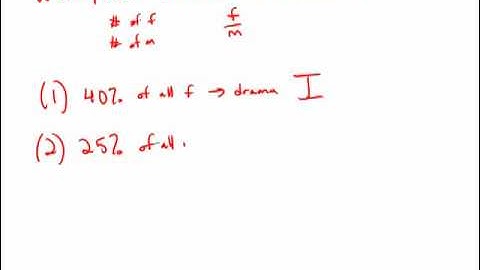 # of f f
# of m m
(1) 40% of all f → drama I
(2) 25% of all